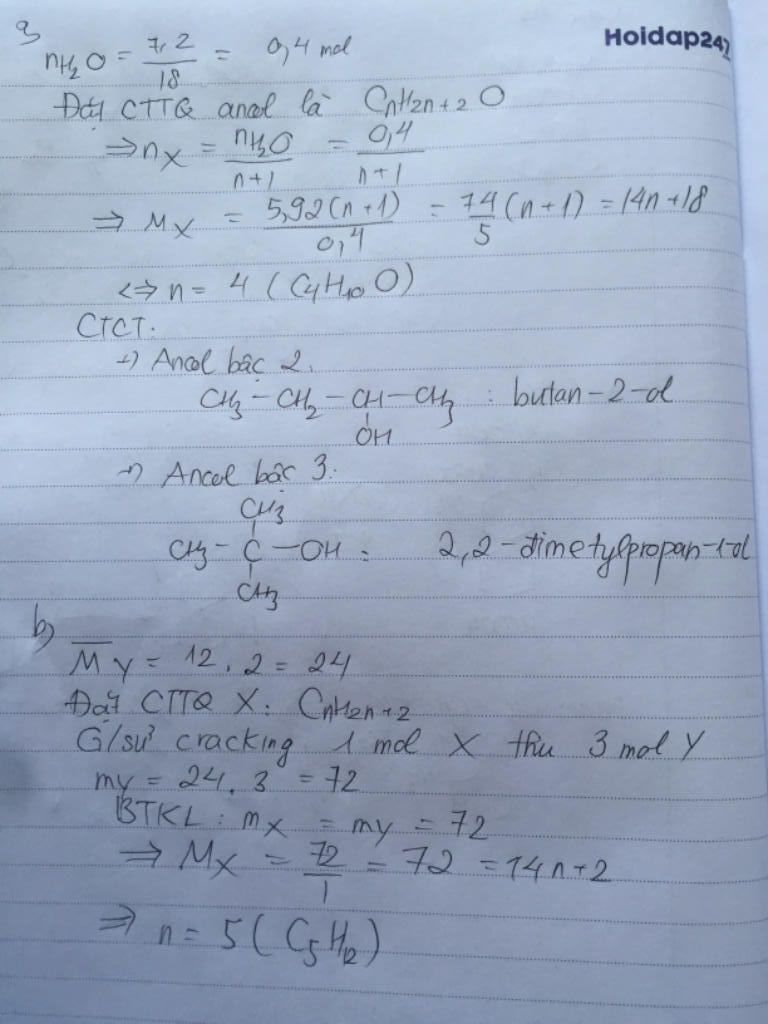 Hoidap247
a)
nH2O = 7,2/18 = 0,4 mol
Đặt CTTQ ancol là CnH2n+2O
⇒ nX = nH2O/n+1 = 0,4/n+1
⇒ MX = 5,92(n+1)/0,4 = 74/5 (n+1) = 14n+18
<=> n = 4 (C4H10O)
CTCT:
+) Ancol bậc 2.
CH3 - CH2 - CH - CH3 : butan-2-ol
OH
+) Ancol bậc 3:
CH3
CH3 - C - OH : 2,2-đimetylpropan-1-ol
CH3
b)
M̅Y = 12.2 = 24
Đặt CTTQ X: CnH2n+2
G/sử cracking 1 mol X thu 3 mol Y
mY = 24.3 = 72
BTKL: mX = mY = 72
⇒ MX = 72/1 = 72 = 14n+2
⇒ n = 5 (C5H12)